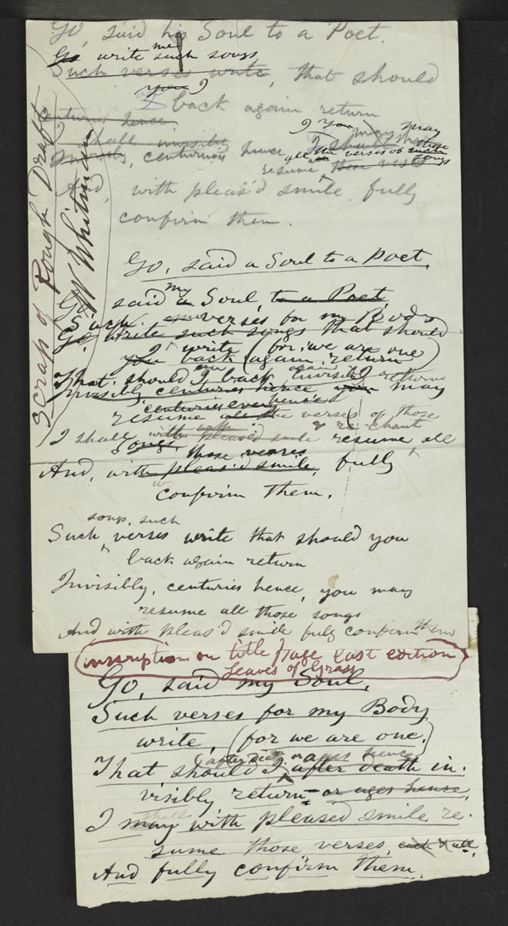 Go, said his Soul to a Poet.
Go write me such songs
Such verses write, that should
you I
back again return
centuries hence,
I you may
centuries hence,
resume all verses of
And with pleas'd smile fully
confirm them.
Scraps of Rough Draft
W Whitman
Go, said a Soul to a Poet.
Go, said my Soul, to a Poet,
Such verses for my Body
Go, write such songs that should
write, (for we are one)
you back again return
That should I back again invisibly return
Invisibly, centuries hence you may
centuries even hence
resume all the verses of those
I shall with pleased smile resume all
& re-chant
songs, those verses
And, with pleas'd smile, fully
confirm them.
songs, such
Such verses write that should you
back again return
Invisibly, centuries hence, you may
resume all those songs
And with pleas'd smile fully confirm them
Inscription on title page last edition
Leaves of Grass
Go, said my Soul,
Such verses for my Body
write, (for we are one,)
That should I after death in-
visibly return or ages hence,
I may with pleased smile re-
sume those verses, each & all,
And fully confirm them.